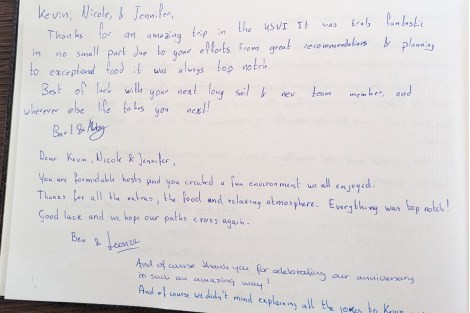 Kevin, Nicole, & Jennifer,
Thanks for an amazing trip in the USVI. It was truly fantastic
in no small part due to your efforts. From great recommendations & planning
to exceptional food it was always top notch.
Best of luck with your next long sail & new team member, and
wherever else life takes you next!
&
Dear Kevin, Nicole & Jennifer,
You are formidable hosts and you created a fun environment we all enjoyed.
Thanks for all the extras, the food and relaxing atmosphere. Everything was top notch!
Good luck and we hope our paths cross again.
Ben &
And of course thank you for celebrating our anniversary
in such an amazing way!
And of course we didn't mind explaining all the jokes to Kevin